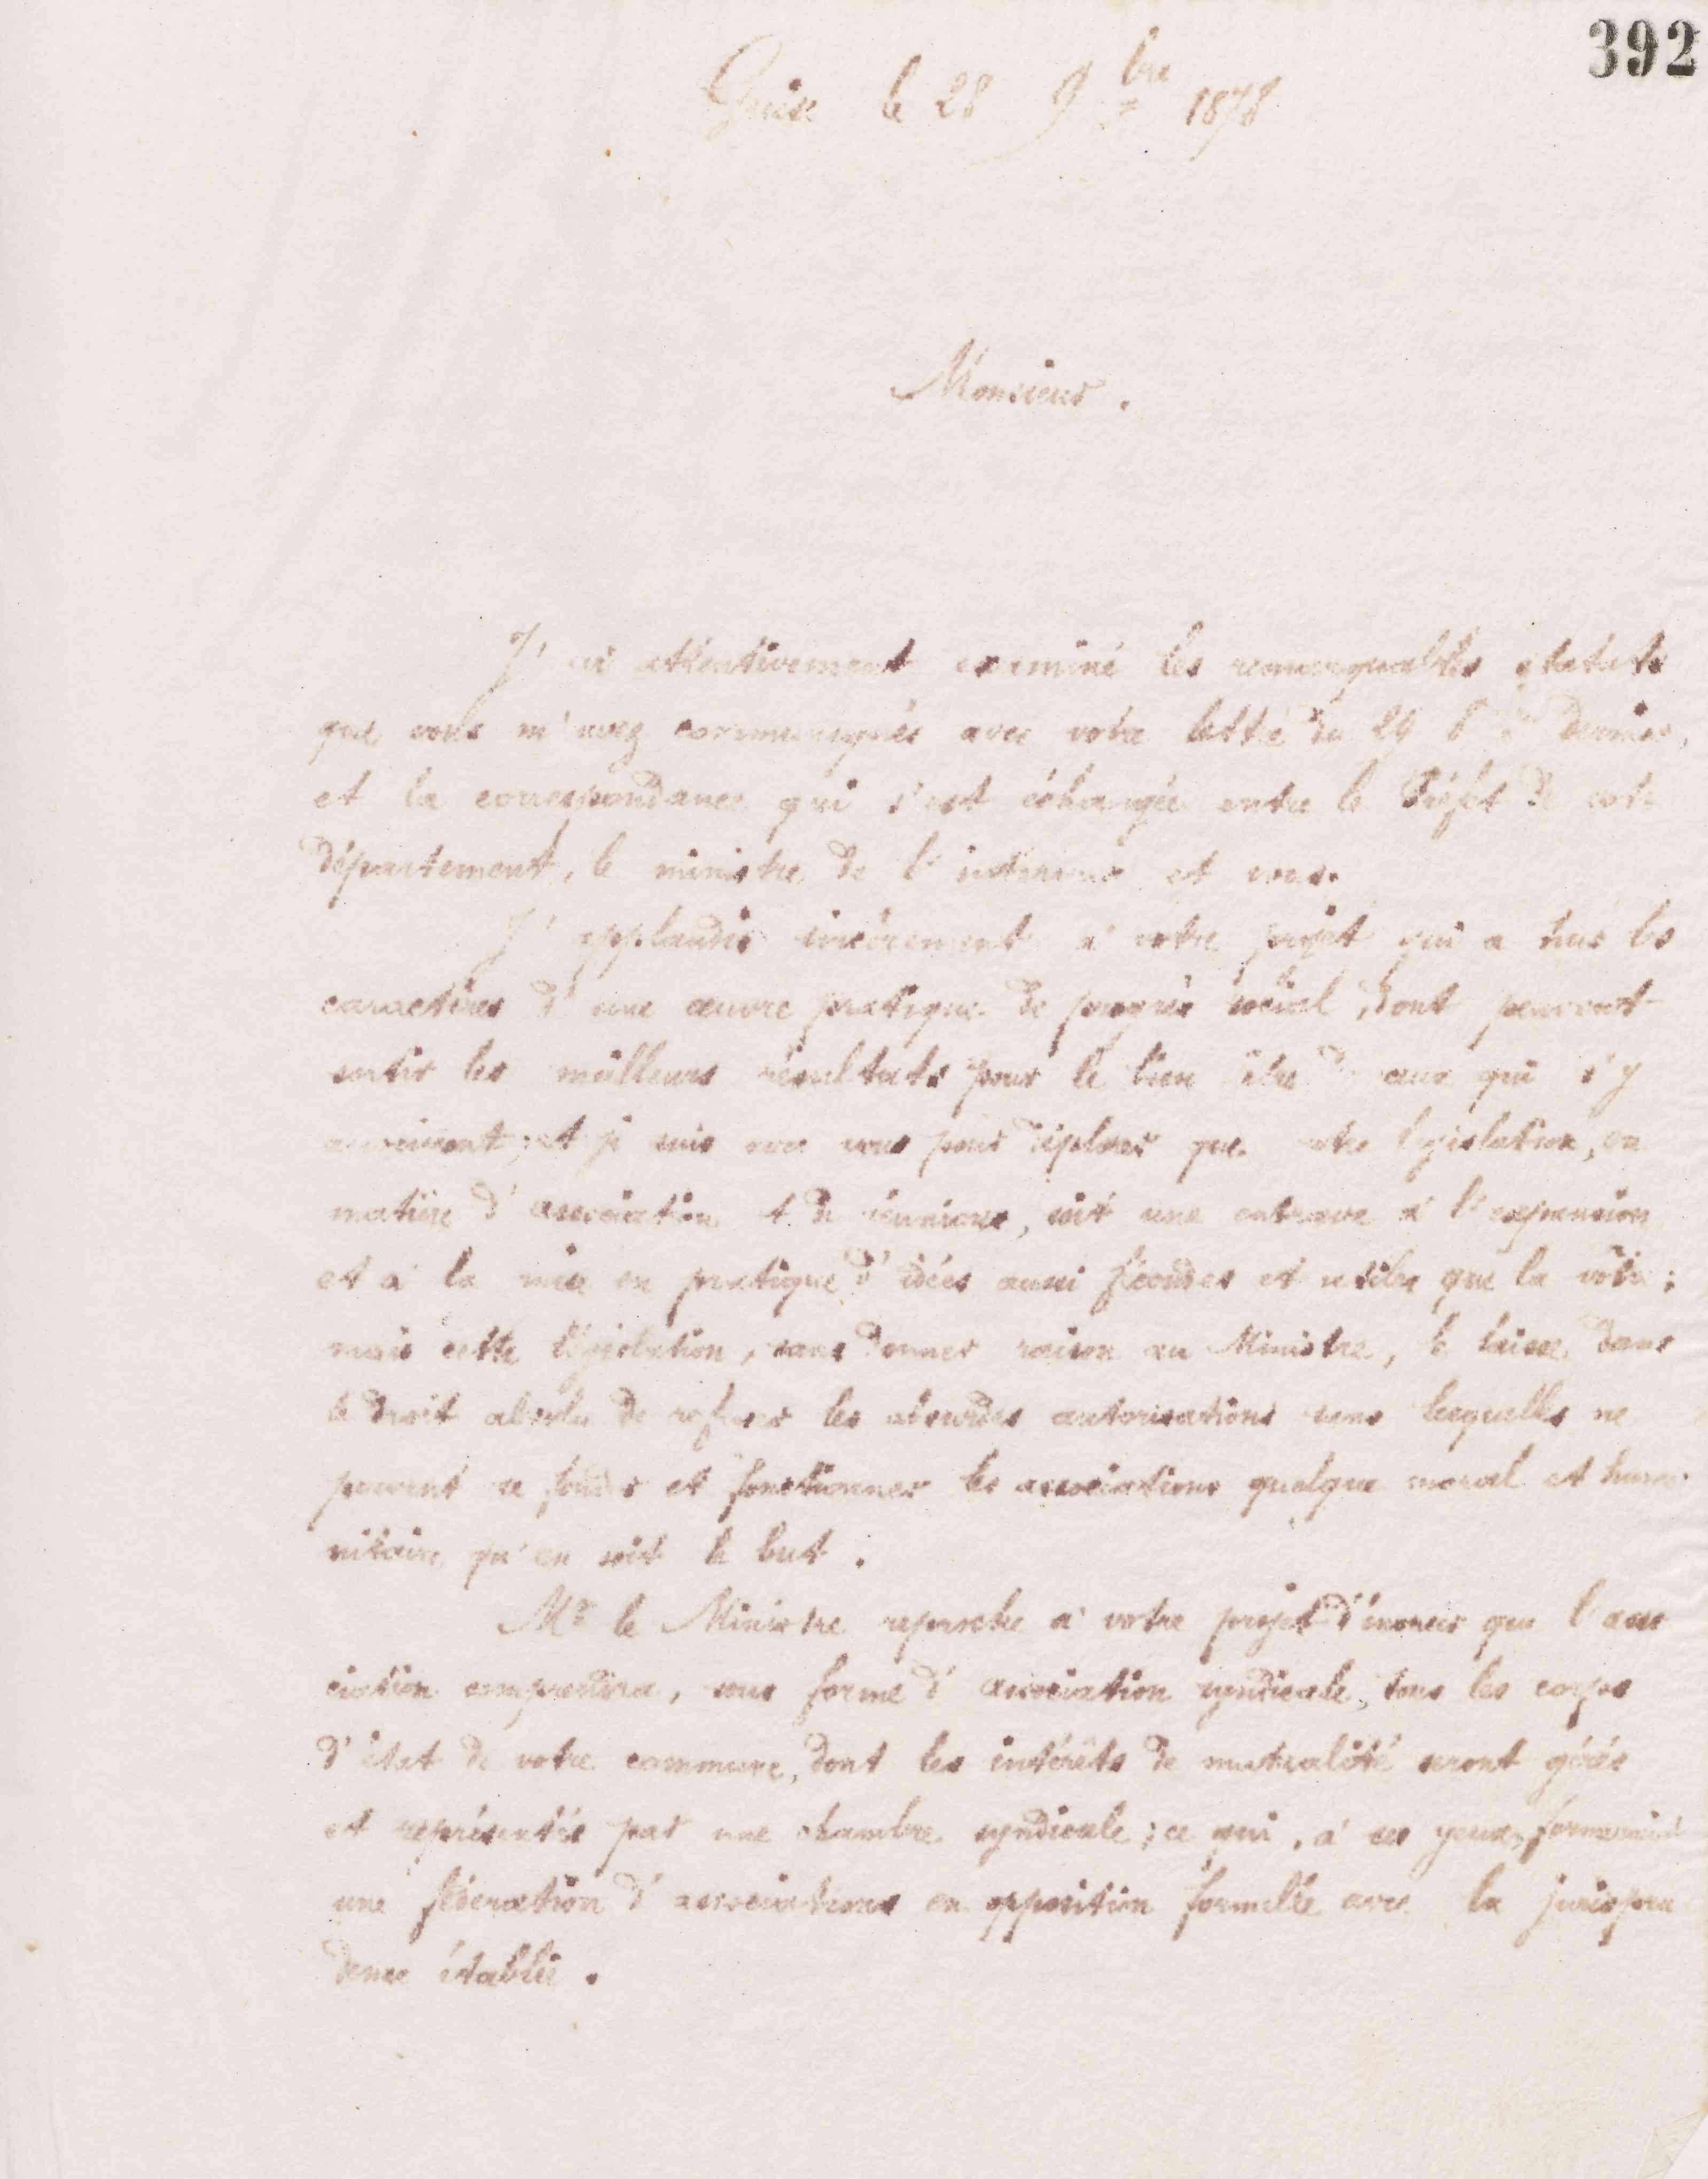 392
Guise le 28 9bre 1878
Monsieur.
J'ai attentivement examiné les remarquables statuts
que vous m'avez communiqués avec votre lettre du 29 8bre dernier,
et la correspondance qui s'est échangée entre le Préfet de votre
département, le ministre de l'intérieur et vous.
J'applaudis sincèrement à votre projet qui a tous les
caractères d'une œuvre pratique de progrès social, dont peuvent
sortir les meilleurs résultats pour le bien être de ceux qui s'y
associeront; et je suis avec vous pour déplorer que notre législation, en
matière d'association et de réunions, soit une entrave à l'expansion
et à la mise en pratique d'idées aussi fécondes et utiles que la vôtre;
mais cette législation, sans donner raison au Ministre, le laisse dans
le droit absolu de refuser les absurdes autorisations sans lesquelles ne
peuvent se fonder et fonctionner les associations quelque moral et huma
nitaire qu'en soit le but.
Mr le Ministre reproche à votre projet d'énoncer que l'asso
ciation comprendra, sous forme d'association syndicale, tous les corps
d'état de votre commune, dont les intérêts de mutualité seront gérés
et représentés par une chambre syndicale; ce qui, à ses yeux, formerait
une fédération d'associations en opposition formelle avec la jurispru
dence établie.